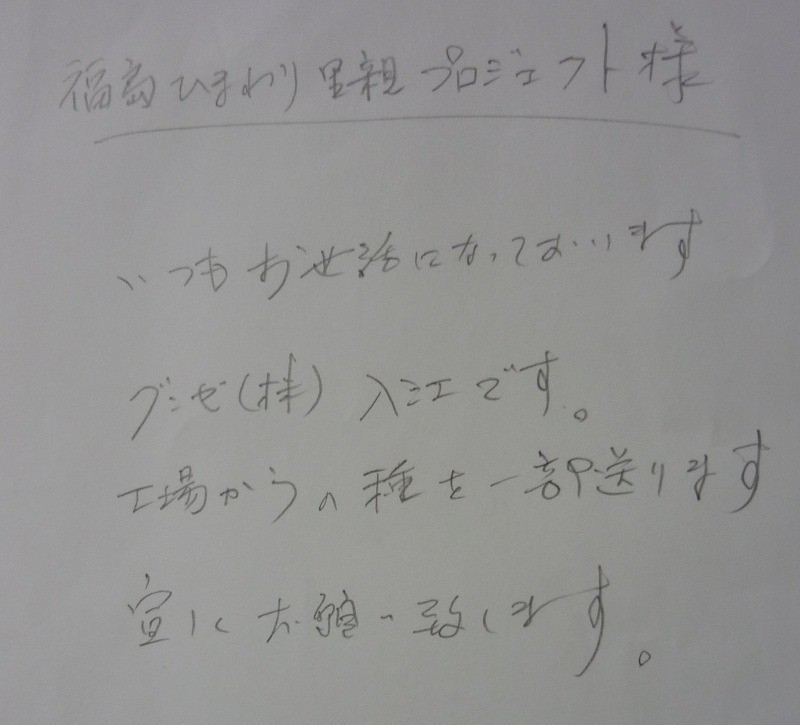 福島ひまわり里親プロジェクト様
いつもお世話になっております
グンゼ(株) 入江です。
工場からの種を一部送ります
宜しくお願い致します。